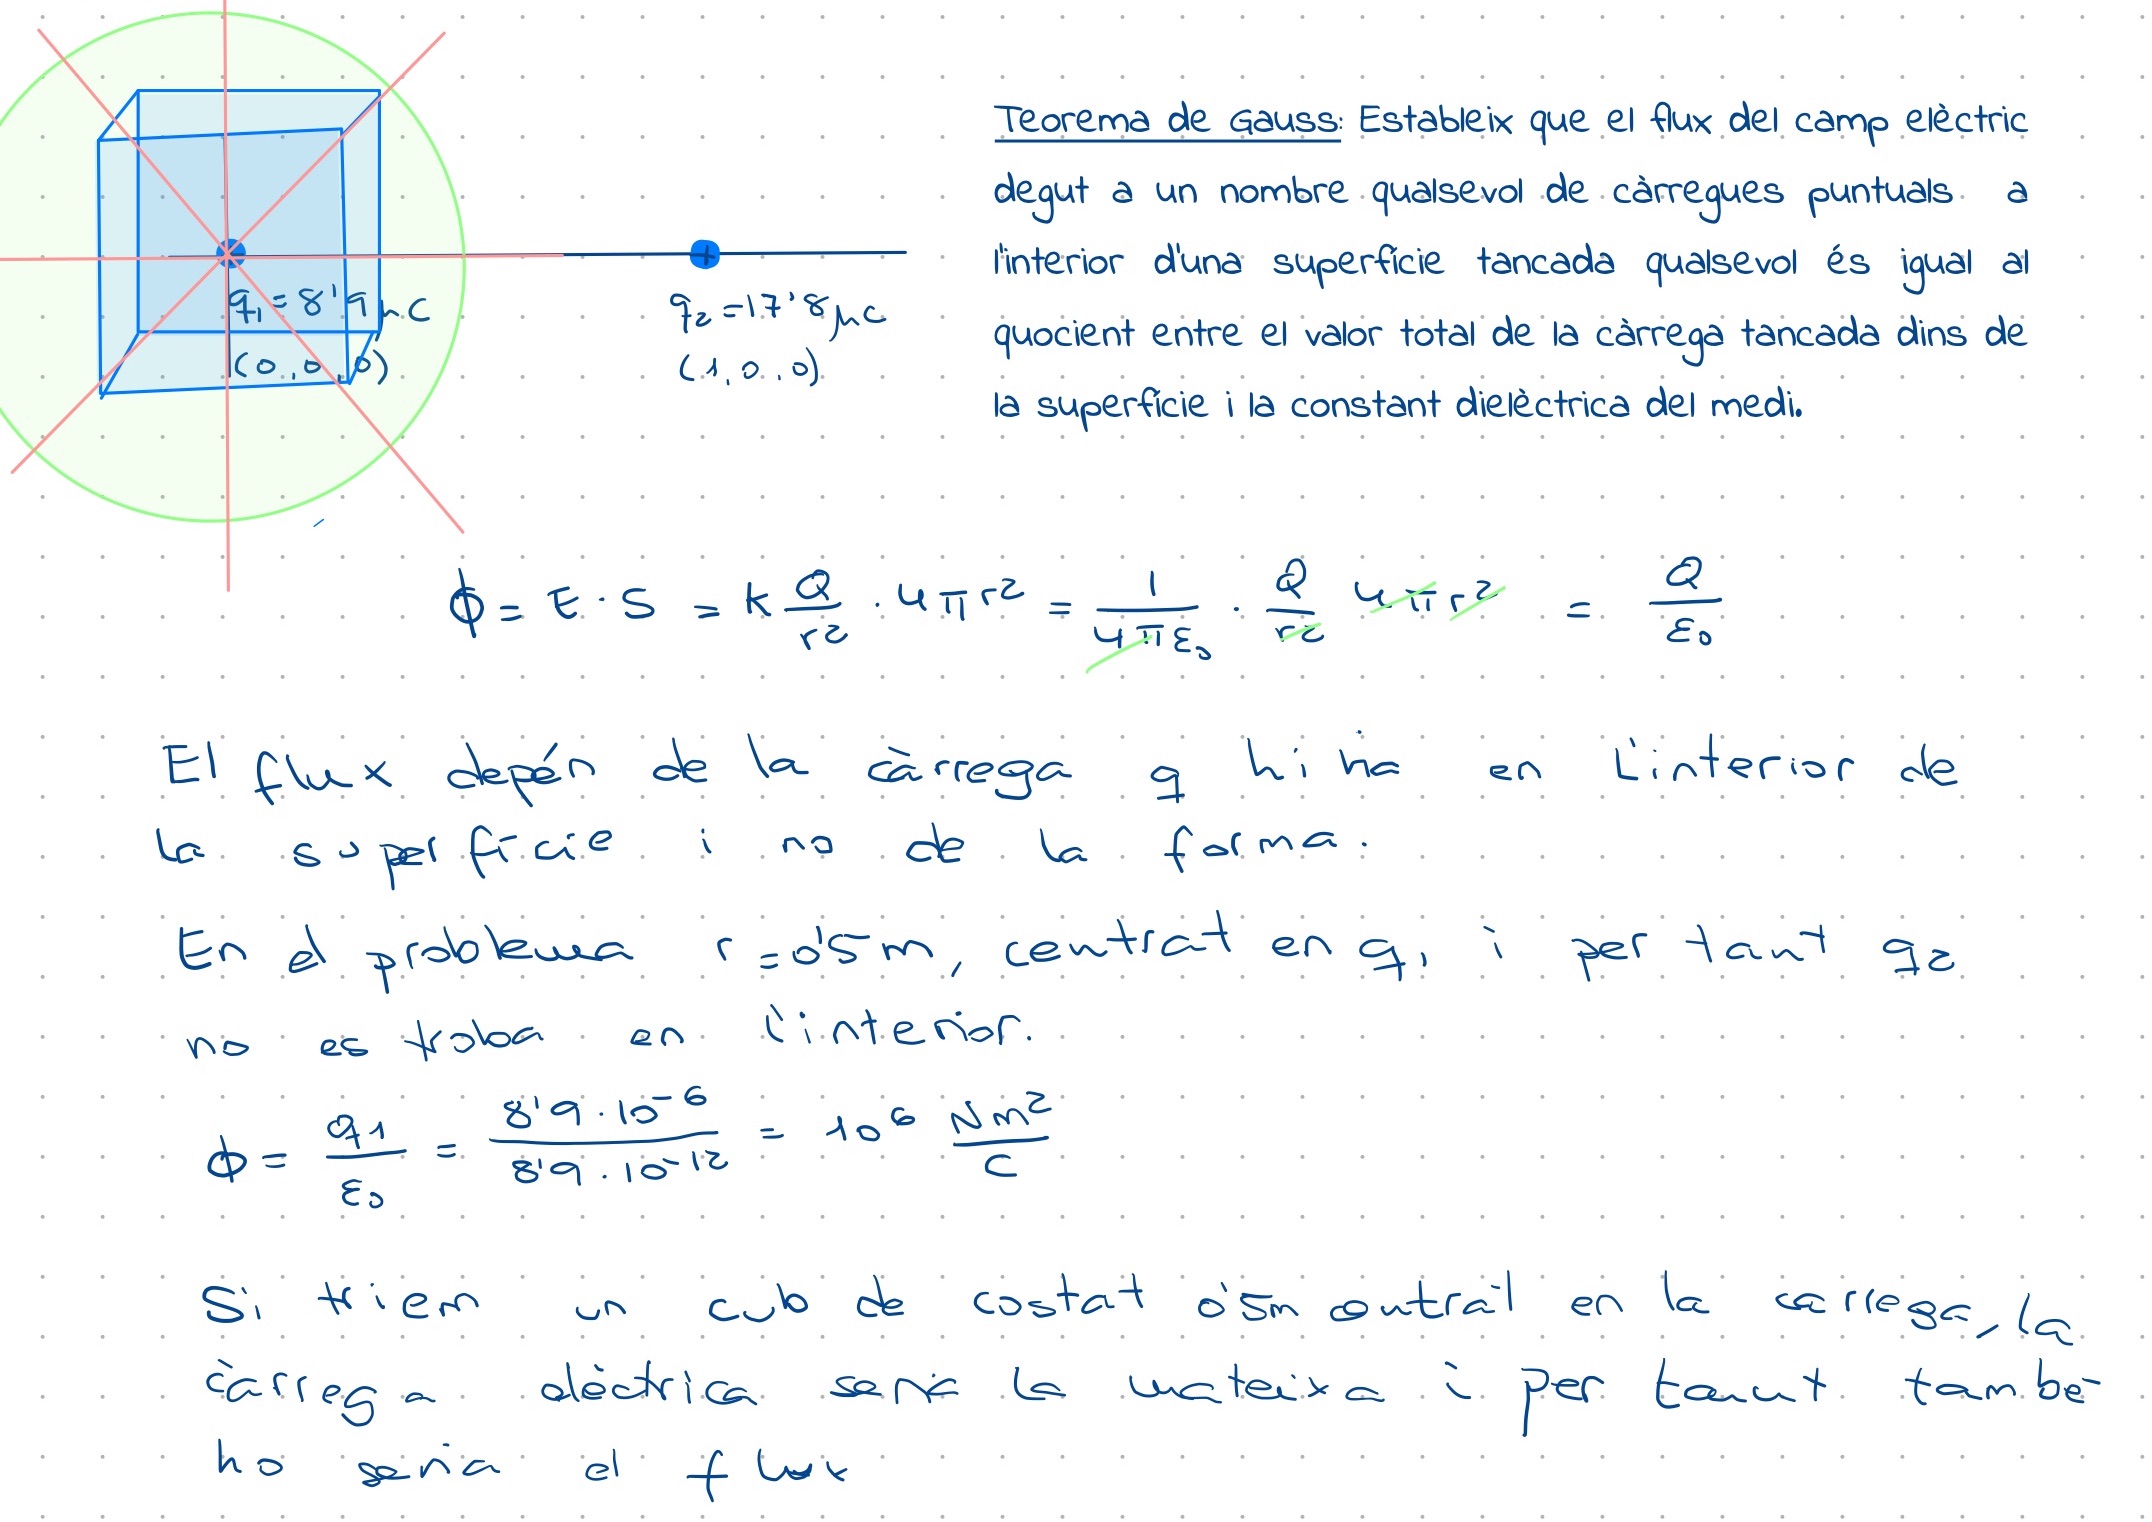 Teorema de Gauss: Estableix que el flux del camp elèctric
degut a un nombre qualsevol de càrregues puntuals a
l'interior d'una superfície tancada qualsevol és igual al
quocient entre el valor total de la càrrega tancada dins de
la superfície i la constant dielèctrica del medi.
q₁ = 8'9 μC
(0,0,0)
+
q₂ = 17'8 μC
(1,0,0)
ϕ = E · S = K Q/r² · 4πr² = 1/(4πε₀) · Q/r² 4πr² = Q/ε₀
El flux depén de la càrrega q hi ha en l'interior de
la superfície i no de la forma.
En el problema r = 0'5m, centrat en q₁ i per tant q₂
no es troba en l'interior.
ϕ = q₁/ε₀ = (8'9 · 10⁻⁶)/(8'9 · 10⁻¹²) = 10⁶ Nm²/C
Si triem un cub de costat 0'5m centrat en la carrega, la
càrrega elèctrica seria la mateixa i per tant també
ho seria el flux